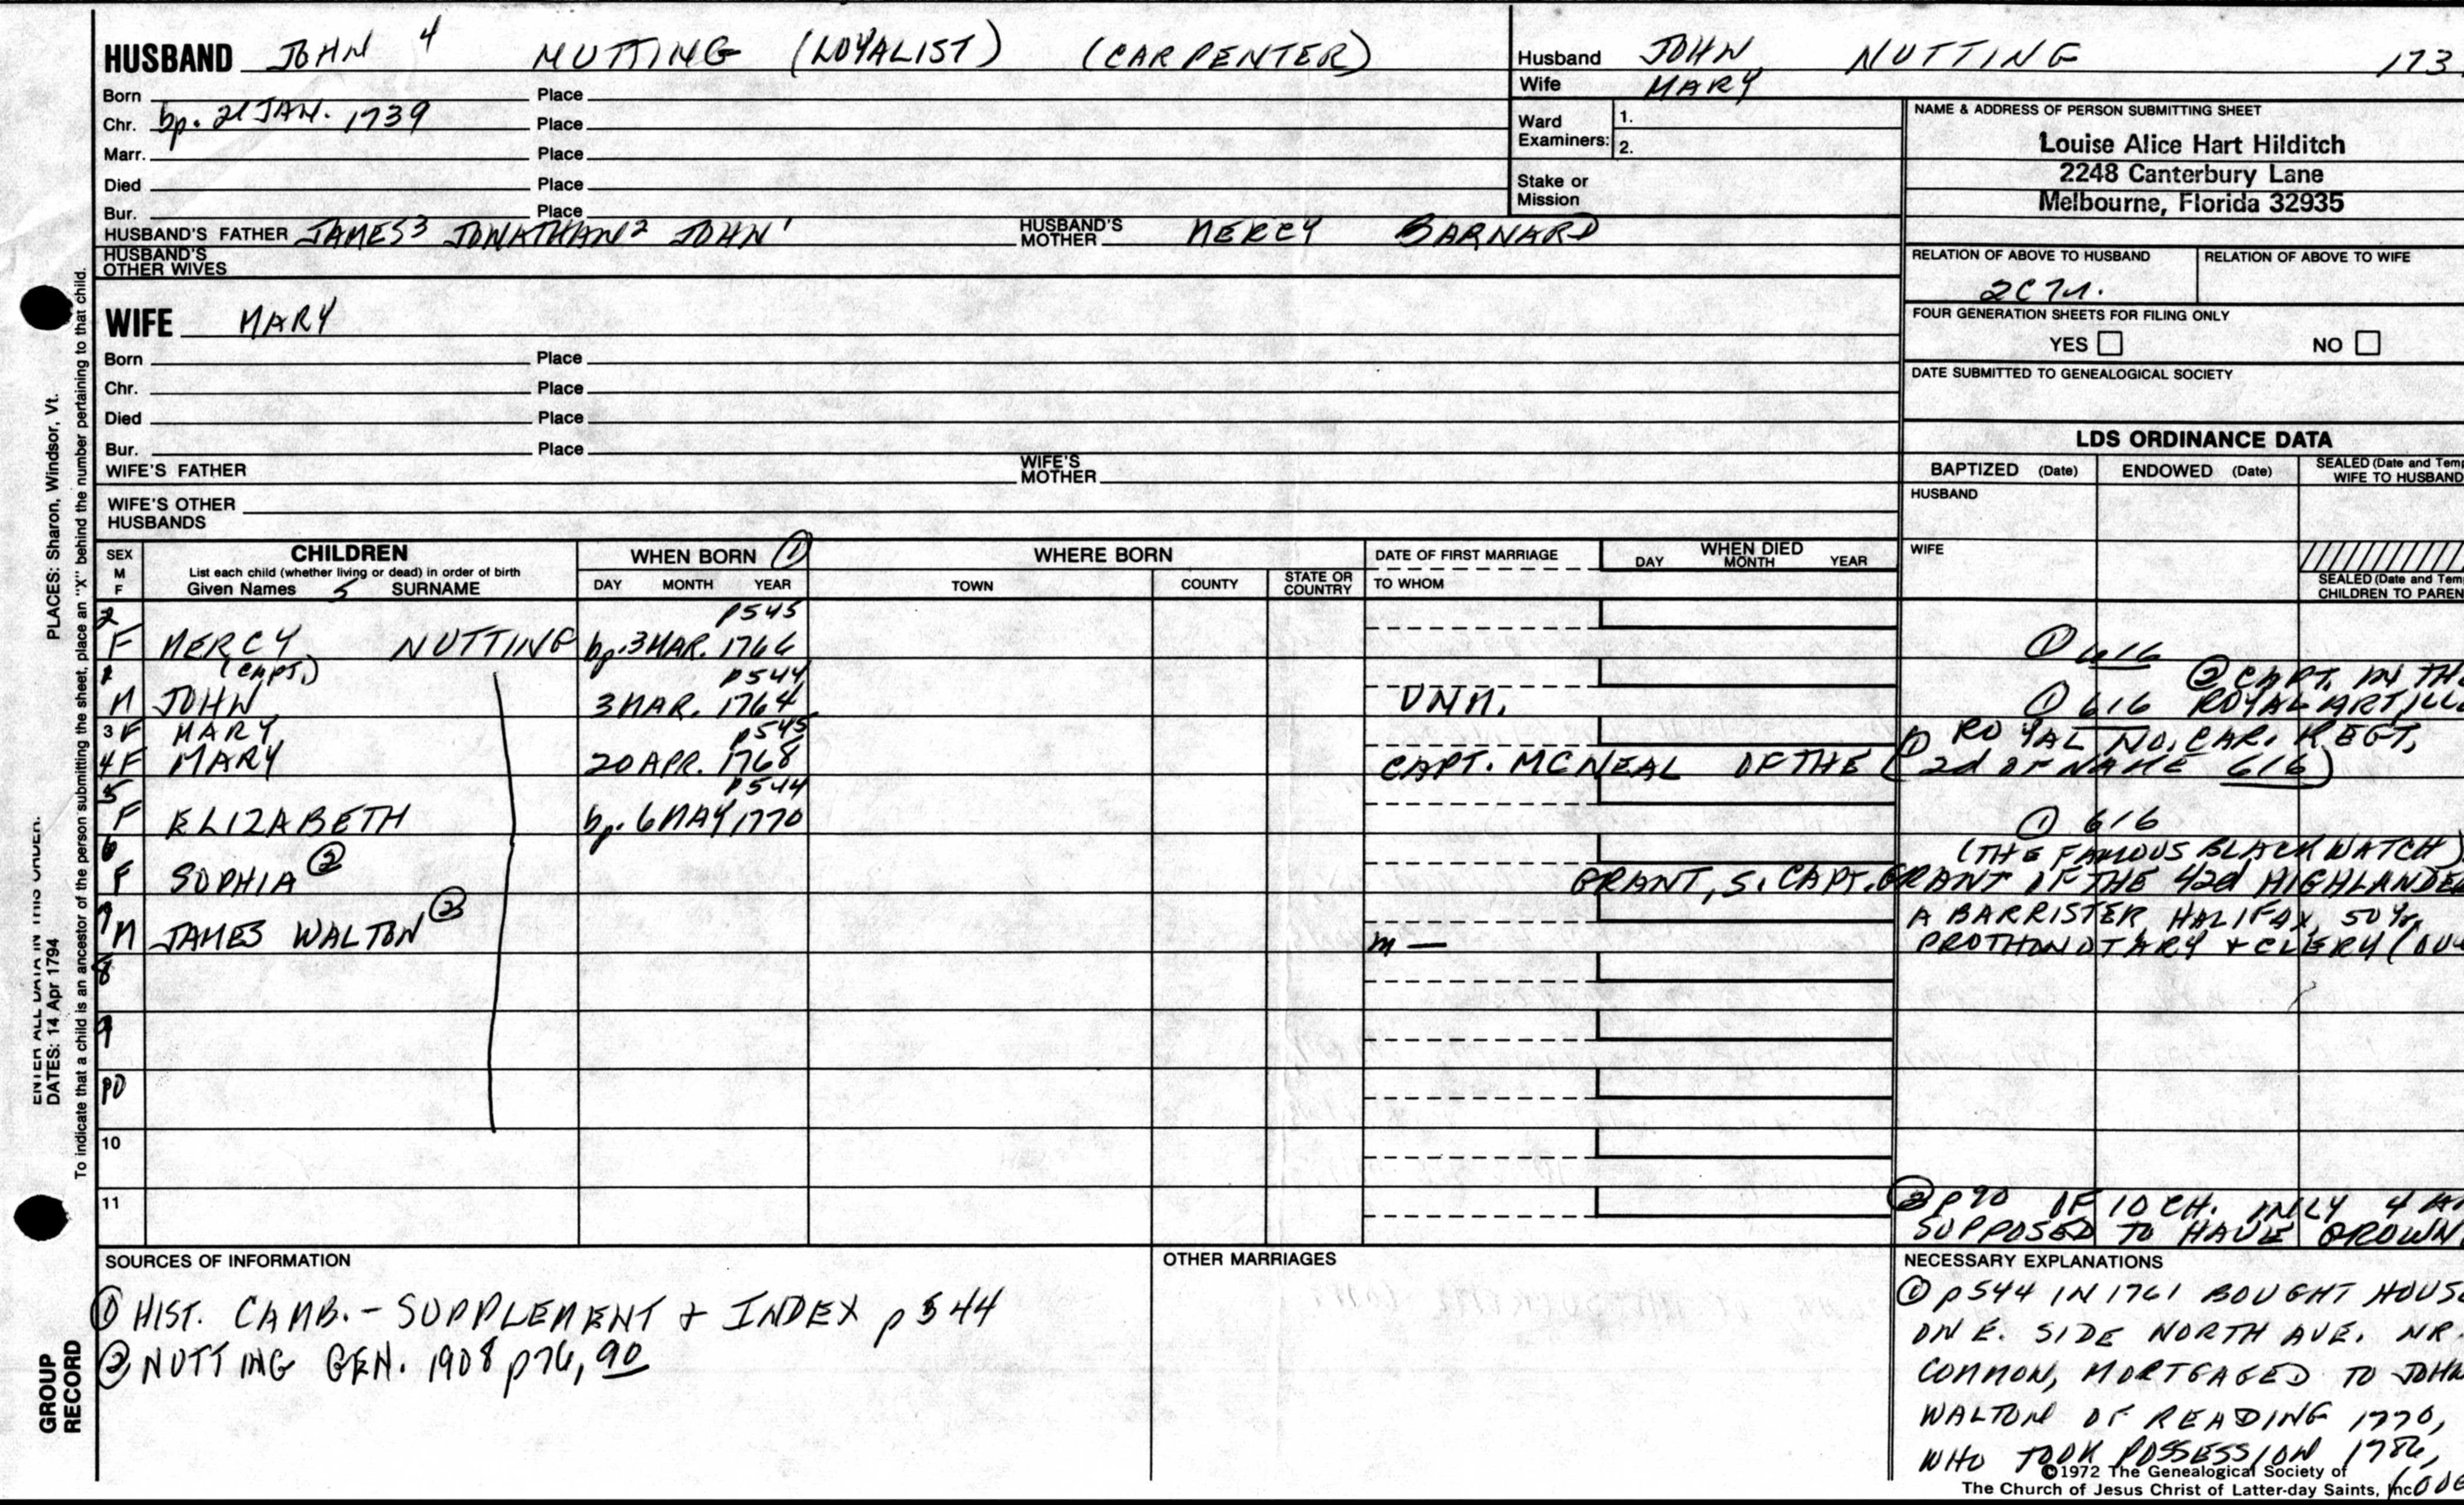 HUSBAND JOHN 4 NUTTING (LOYALIST) (CARPENTER)
Born Place
Chr. bp. 21 JAN. 1739 Place
Marr. Place
Died Place
Bur. Place
HUSBAND'S FATHER JAMES3 JONATHAN2 JOHN1 HUSBAND'S MOTHER MERCY BARNARD
HUSBAND'S OTHER WIVES
WIFE MARY
Born Place
Chr. Place
Died Place
Bur. Place
WIFE'S FATHER WIFE'S MOTHER
WIFE'S OTHER HUSBANDS
Husband JOHN NUTTING 173
Wife MARY
Ward Examiners: 1.
2.
Stake or Mission
NAME & ADDRESS OF PERSON SUBMITTING SHEET
Louise Alice Hart Hilditch
2248 Canterbury Lane
Melbourne, Florida 32935
RELATION OF ABOVE TO HUSBAND RELATION OF ABOVE TO WIFE
FOUR GENERATION SHEETS FOR FILING ONLY
YES NO
DATE SUBMITTED TO GENEALOGICAL SOCIETY
LDS ORDINANCE DATA
BAPTIZED (Date) ENDOWED (Date) SEALED (Date and Temp
WIFE TO HUSBAND
HUSBAND
WIFE
SEALED (Date and Temp
CHILDREN TO PAREN
SEX M F
CHILDREN
List each child (whether living or dead) in order of birth
Given Names 5 SURNAME
WHEN BORN ①
DAY MONTH YEAR
WHERE BORN
TOWN COUNTY STATE OR COUNTRY
DATE OF FIRST MARRIAGE
TO WHOM
WHEN DIED
DAY MONTH YEAR
2 p545
F MERCY NUTTING bp. 3 MAR. 1766 ① 616
1 (CAPT.) p544 ② CAPT. IN THE
M JOHN 3 MAR. 1764 UNM. ① 616 ROYAL ARTILL
3 F MARY p545 ROYAL NO. CAR. REGT,
4 F MARY 20 APR. 1768 CAPT. MCNEAL OF THE ① (2d OF NAME 616)
5 p544
F ELIZABETH bp. 6 MAY 1770 ① 616
6 (THE FAMOUS BLACK WATCH)
F SOPHIA ② GRANT, S. CAPT. GRANT OF THE 42d HIGHLANDE
7 A BARRISTER HALIFAX, 50 Yr,
M JAMES WALTON ② m — PROTHONOTARY +
8
9
10
10
11
② p90 OF 10 CH. ONLY 4
SUPPOSED TO HAVE GROWN
SOURCES OF INFORMATION
① HIST. CAMB. - SUPPLEMENT + INDEX p 544
② NUTTING GEN. 1908 p76, 90
OTHER MARRIAGES
NECESSARY EXPLANATIONS
① p544 IN 1761 BOUGHT HOUSE
ON E. SIDE NORTH AVE. NR.
COMMON, MORTGAGED TO JOHN
WALTON OF READING 1770,
WHO TOOK POSSESSION 1786,
©1972 The Genealogical Society of
The Church of Jesus Christ of Latter-day Saints, Inc
PLACES: Sharon, Windsor, Vt.
ENTER ALL DATA IN THIS ORDER:
DATES: 14 Apr 1794
To indicate that a child is an ancestor of the person submitting the sheet, place an "X" behind the number pertaining to that child.
GROUP
RECORD